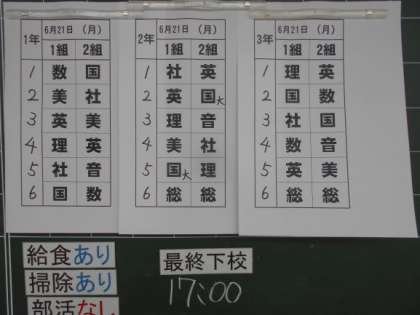 1年 6月21日 (月)
1組 2組
1 数 国
2 美 社
3 英 美
4 理 英
5 社 音
6 国 数
2年 6月21日 (月)
1組 2組
1 社 英
2 英 国大
3 理 音
4 美 社
5 国大 理
6 総 総
3年 6月21日 (月)
1組 2組
1 理 英
2 国 数
3 社 国
4 数 音
5 英 美
6 総 総
給食あり
掃除あり
部活なし
最終下校
17:00